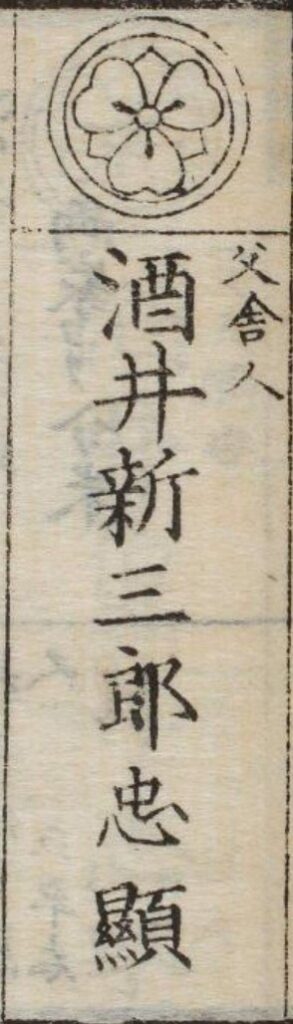 父舎人
酒井新三郎忠顯